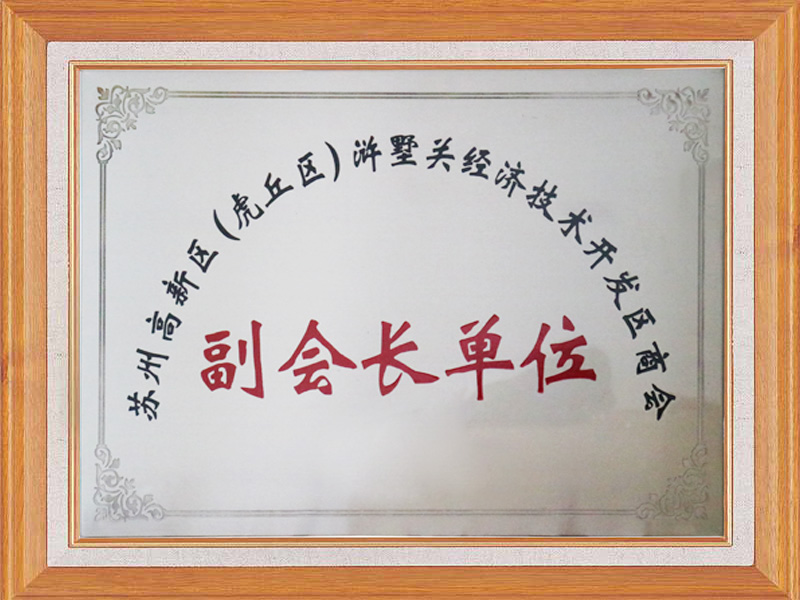 苏州高新区(虎丘区)浒墅关经济技术开发区商会
副会长单位